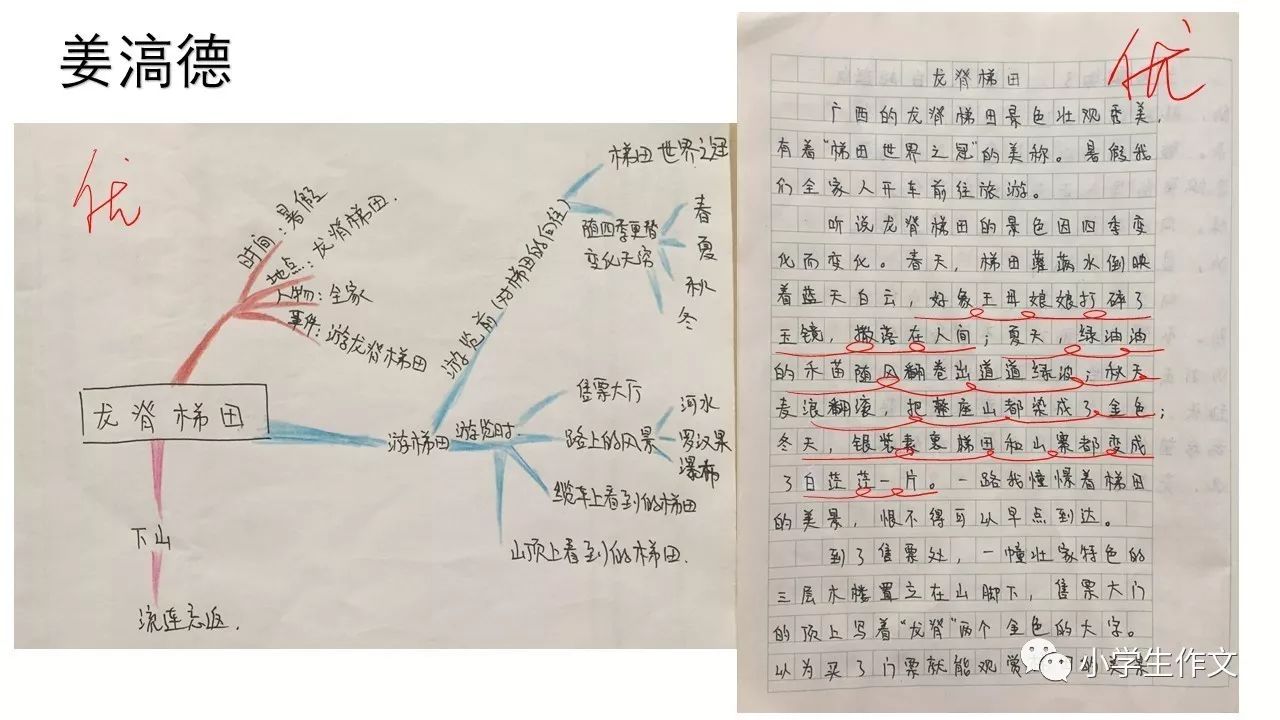 姜滈德
优
时间：暑假
地点：龙脊梯田.
人物：全家
事件：游龙脊梯田
龙脊梯田
游梯田
游览前（对梯田的向往）
梯田世界之冠
随四季更替
变化无穷
春
夏
秋
冬
游览时.
售票大厅
路上的风景
河水
罗汉果
瀑布
缆车上看到的梯田
山顶上看到的梯田.
下山
流连忘返.
优
龙脊梯田
广西的龙脊梯田景色壮观秀美，
有着“梯田世界之冠”的美称。暑假我
们全家人开车前往旅游。
听说龙脊梯田的景色因四季变
化而变化。春天，梯田蓄满水倒映
着蓝天白云，好象王母娘娘打碎了
玉镜，撒落在人间；夏天，绿油油
的禾苗随风翻卷出道道绿波；秋天
麦浪翻滚，把整座山都染成了金色；
冬天，银装素裹梯田和山寨都变成
了白茫茫一片。一路我憧憬着梯田
的美景，恨不得可以早点到达。
到了售票处，一幢壮家特色的
三层木楼置立在山脚下，售票大门
的顶上写着“龙脊”两个金色的大字。
以为买了门票就能观赏
小学生作文